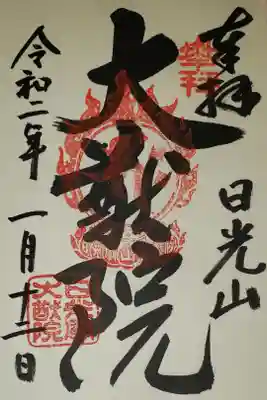 奉拝
日光山
大猷院
令和二年 一月十二日
日光山
大猷院